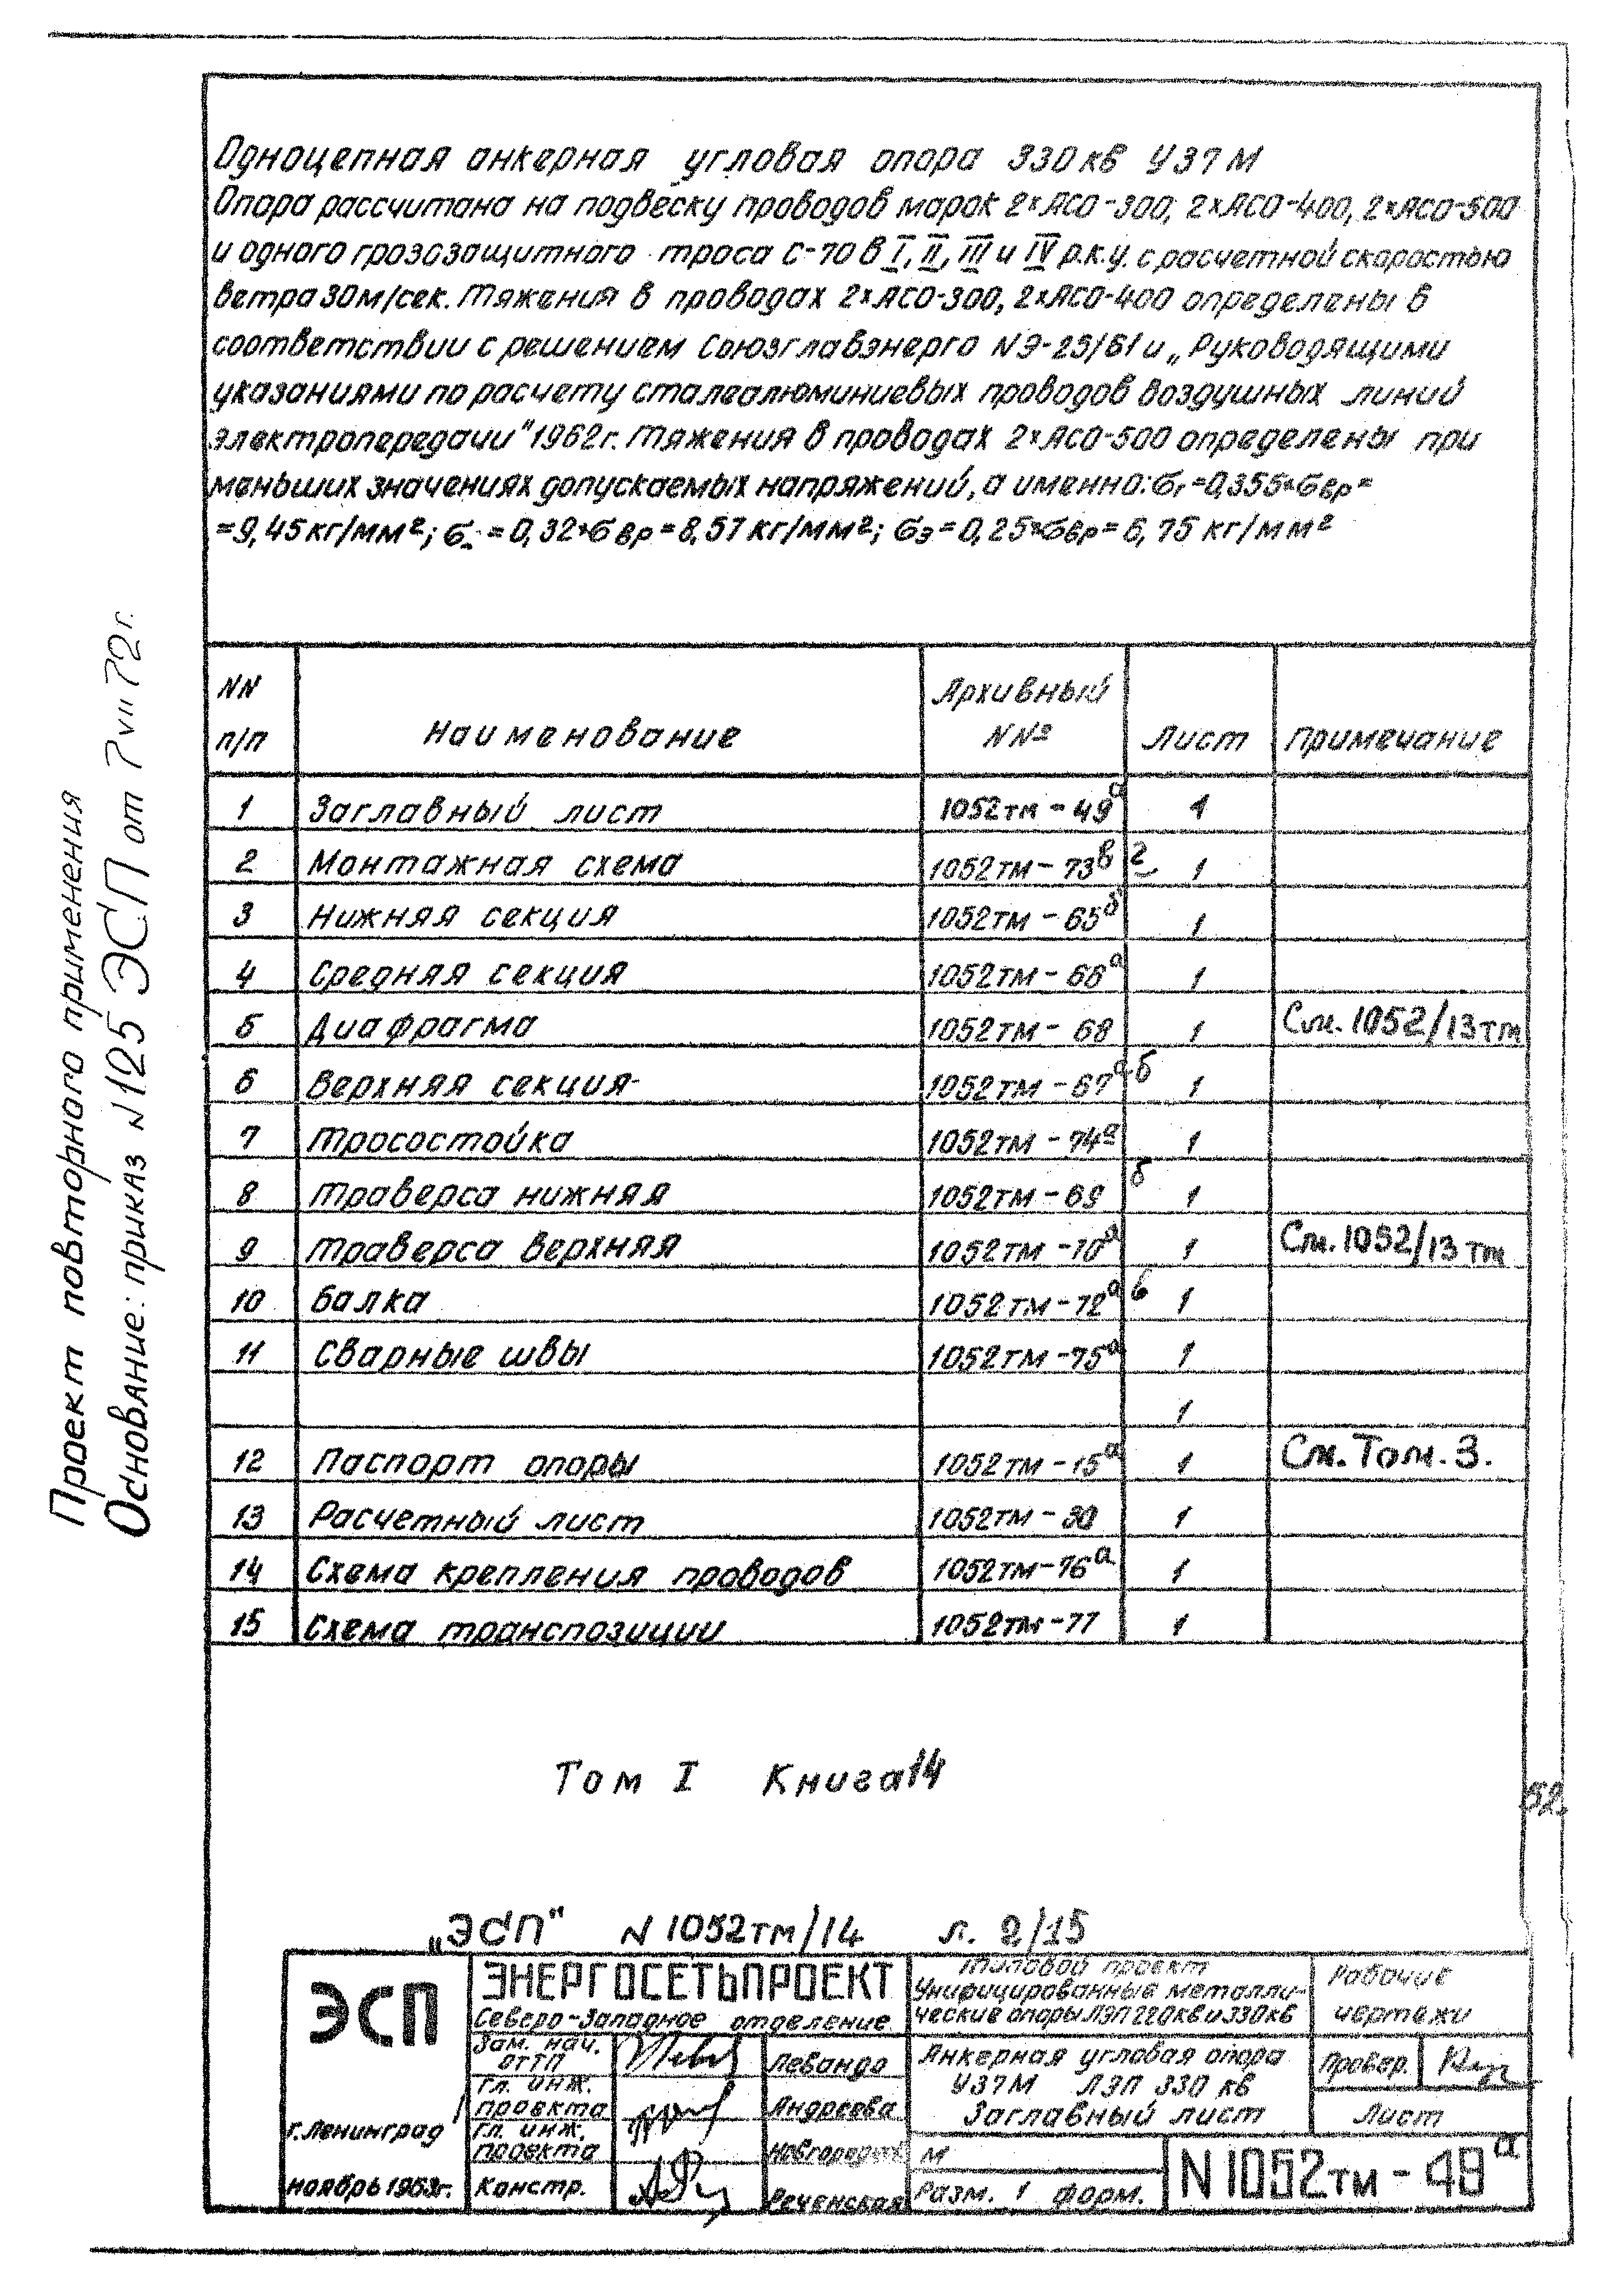 Одноцепная анкерная угловая опора 330 кв У37М
Опора рассчитана на подвеску проводов марок 2×АСО-300, 2×АСО-400, 2×АСО-500
и одного грозозащитного троса С-70 в I, II, III и IV р.к.у. с расчетной скоростью
ветра 30 м/сек. Тяжения в проводах 2×АСО-300, 2×АСО-400 определены в
соответствии с решением Союзглавэнерго N Э-25/61 и „Руководящими
указаниями по расчету сталеалюминиевых проводов воздушных линий
электропередачи" 1962 г. Тяжения в проводах 2×АСО-500 определены при
меньших значениях допускаемых напряжений, а именно: σг=0,355×σвр=
=9,45 кг/мм²; σ-=0,32×σвр=8,57 кг/мм²; σэ=0,25×σвр=6,75 кг/мм²
NN п/п Наименование Архивный NNº Лист Примечание
1 Заглавный лист 1052тм-49а 1
2 Монтажная схема 1052тм-73в г 1
3 Нижняя секция 1052тм-65б 1
4 Средняя секция 1052тм-66а 1
5 Диафрагма 1052тм-68 1 См. 1052/13тм
6 Верхняя секция 1052тм-67а б 1
7 Тросостойка 1052тм-74а 1
8 Траверса нижняя 1052тм-69 б 1
9 Траверса верхняя 1052тм-70а 1 См. 1052/13 тм
10 Балка 1052тм-72а в 1
11 Сварные швы 1052тм-75а 1
1
12 Паспорт опоры 1052тм-15а 1 См. Том. 3.
13 Расчетный лист 1052тм-30 1
14 Схема крепления проводов 1052тм-76а 1
15 Схема транспозиции 1052тм-77 1
Том I Книга 14
52.
„ЭСП" N 1052тм/14 л. 2/15
ЭСП
г. Ленинград
ноябрь 1963г.
ЭНЕРГОСЕТЬПРОЕКТ
Северо-Западное отделение
Зам. нач. ОТТП Левандо
Гл. инж. проекта Андреева
Гл. инж. проекта
Констр. Реченская
Типовой проект
Унифицированные металли-
ческие опоры ЛЭП 220кв и 330кв
Рабочие
чертежи
Анкерная угловая опора
У37М ЛЭП 330 кв
Заглавный лист
Провер.
Лист
М
Разм. 1 форм.
N 1052тм-49а
Проект повторного применения
Основание: приказ N 125 ЭСП от 7 VII 72г.